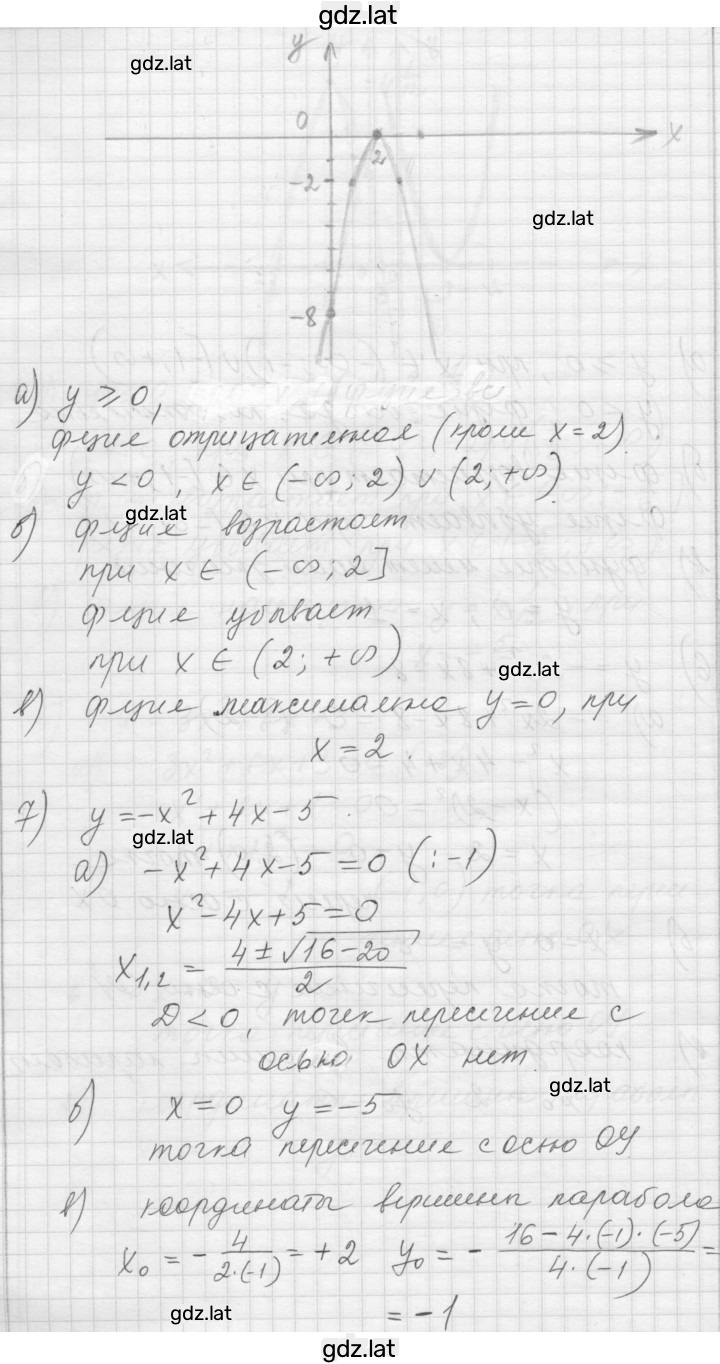 gdz.lat
y
gdz.lat
0
x
2
-2
gdz.lat
-8
а) y ≥ 0,
ф-ция отрицательная (кроме x = 2)
y < 0, x ∈ (-∞; 2) ∪ (2; +∞)
gdz.lat
б) ф-ция возрастает
при x ∈ (-∞; 2]
ф-ция убывает
при x ∈ (2; +∞)
gdz.lat
в) ф-ция максимальна y = 0, при
x = 2.
7) y = -x² + 4x - 5.
gdz.lat
а) -x² + 4x - 5 = 0 (: -1)
x² - 4x + 5 = 0
x₁,₂ = (4 ± √(16 - 20))/2
D < 0, точек пересечение с
осью OX нет
gdz.lat
б) x = 0 y = -5
точка пересечение с осью OY
в) координаты вершины парабола
x₀ = - 4/(2·(-1)) = +2 y₀ = - (16 - 4·(-1)·(-5))/(4·(-1)) =
gdz.lat
= -1
gdz.lat